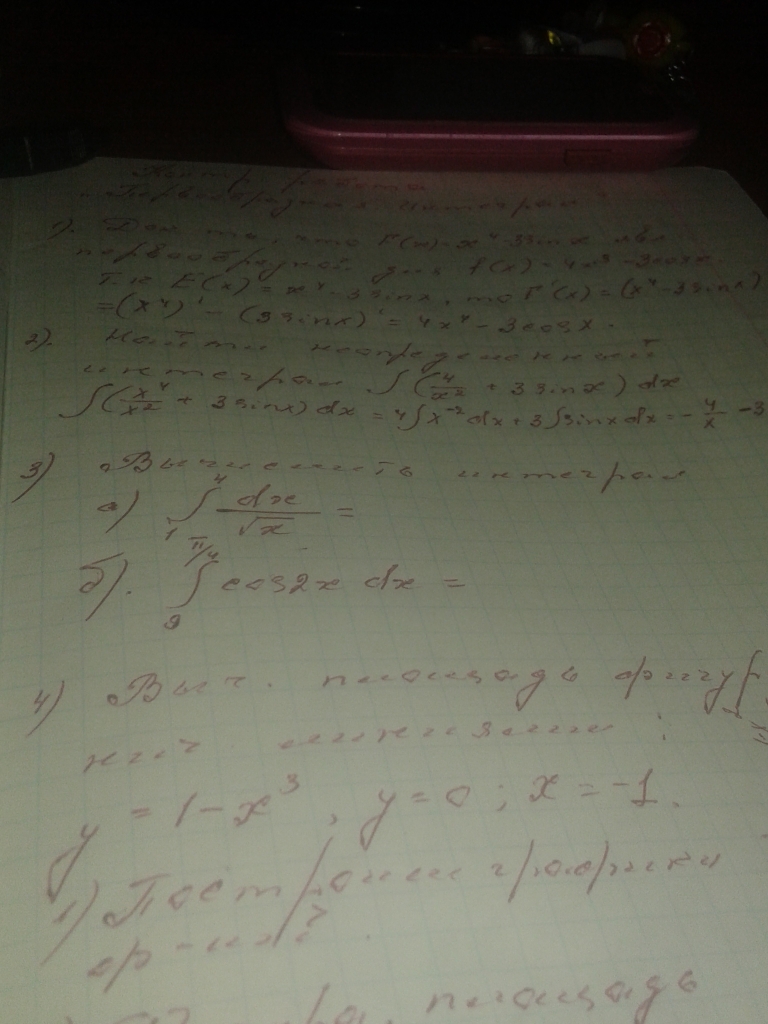 Контр. работа
"Первообразная. Интеграл"
1). Док-ть, что F(x)=x⁴-3sinx явл.
первообразной для f(x)=4x³-3cosx.
Т.к F(x)=x⁴-3sinx, то F'(x)=(x⁴-3sinx)
=(x⁴)'-(3sinx)'=4x⁴-3cosx.
2). Найти неопределенный
интеграл ∫(4/x²+3sinx)dx
∫(x⁴/x²+3sinx)dx=4∫x⁻²dx+3∫sinxdx=-4/x-3
3) Вычислить интеграл
а) ∫₁⁴ dx/√x =
б). ∫ cos2x dx =
4) Выч. площадь фигур
нич. линиями:
y=1-x³, y=0; x=-1.
1) Построим графики
ф-ий
площадь